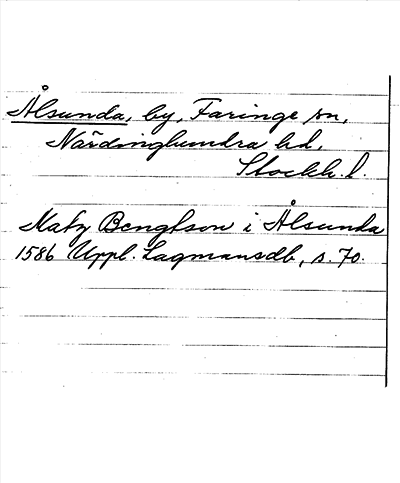 Ålsunda, by, Faringe sn,
Närdinghundra hd,
Stockh. l.
Matz Bengtson i Ålsunda
1586 Uppl. Lagmansdb, s. 70.